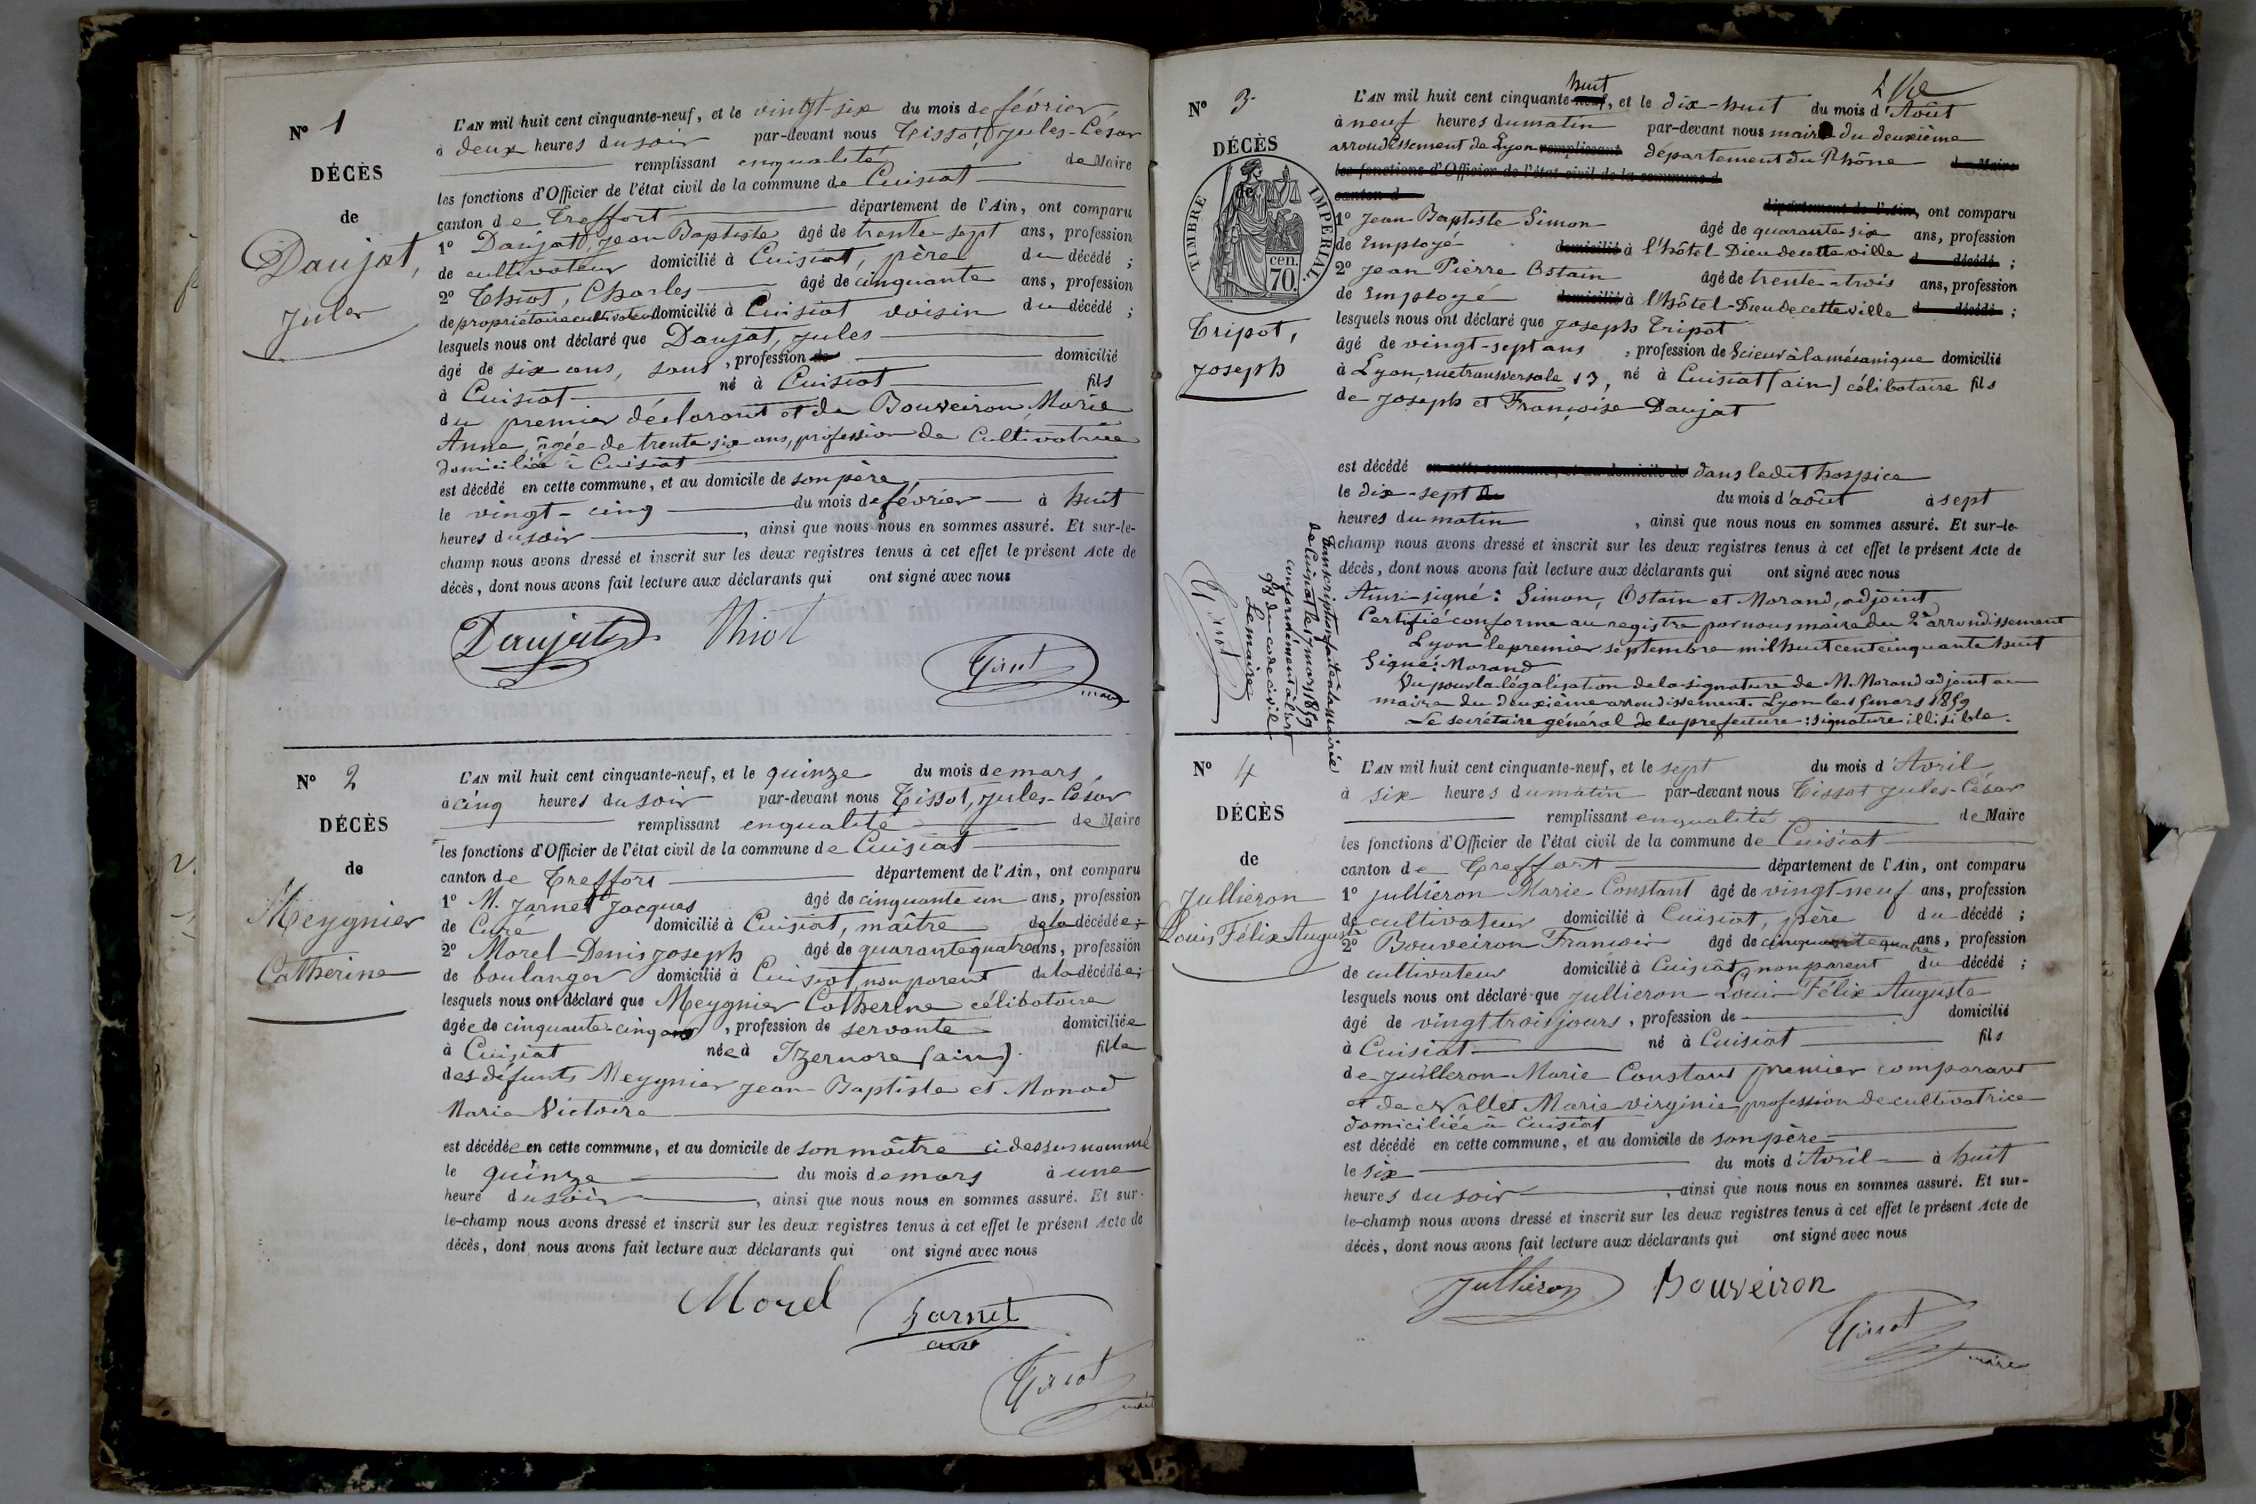 N° 1
DÉCÈS
de
Daujat,
Jules
L'AN mil huit cent cinquante-neuf, et le vingt-six du mois de février
à deux heures du soir par-devant nous Tissot, Jules-César
remplissant en qualité de Maire
les fonctions d'Officier de l'état civil de la commune de Cuisiat
canton de Treffort département de l'Ain, ont comparu
1° Daujat, Jean Baptiste âgé de trente-sept ans, profession
de cultivateur domicilié à Cuisiat, père du décédé ;
2° Thiot, Charles âgé de cinquante ans, profession
de propriétaire cultivateur domicilié à Cuisiat voisin du décédé ;
lesquels nous ont déclaré que Daujat, Jules
âgé de six ans, sans, profession de domicilié
à Cuisiat né à Cuisiat fils
du premier déclarant et de Bouveiron Marie
Anne, âgée de trente-six ans, profession de Cultivatrice
domiciliée à Cuisiat
est décédé en cette commune, et au domicile de son père
le vingt-cinq du mois de février à huit
heures du soir, ainsi que nous nous en sommes assuré. Et sur-le-
champ nous avons dressé et inscrit sur les deux registres tenus à cet effet le présent Acte de
décès, dont nous avons fait lecture aux déclarants qui ont signé avec nous
Daujat Thiot
Tissot
maire
N° 2
DÉCÈS
de
Meygnier
Catherine
L'AN mil huit cent cinquante-neuf, et le quinze du mois de mars
à cinq heures du soir par-devant nous Tissot, Jules-César
remplissant en qualité de Maire
les fonctions d'Officier de l'état civil de la commune de Cuisiat
canton de Treffort département de l'Ain, ont comparu
1° M. Jarnet Jacques âgé de cinquante un ans, profession
de Curé domicilié à Cuisiat, maître de la décédée ;
2° Morel Denis Joseph âgé de quarante quatre ans, profession
de boulanger domicilié à Cuisiat, non parent de la décédée ;
lesquels nous ont déclaré que Meygnier Catherine célibataire
âgée de cinquante-cinq ans, profession de servante domiciliée
à Cuisiat née à Izernore (ain) fille
des défunts Meygnier Jean Baptiste et Monod
Marie Victoire
est décédée en cette commune, et au domicile de son maître ci dessus nommé
le quinze du mois de mars à une
heure du soir, ainsi que nous nous en sommes assuré. Et sur-
le-champ nous avons dressé et inscrit sur les deux registres tenus à cet effet le présent Acte de
décès, dont nous avons fait lecture aux déclarants qui ont signé avec nous
Morel Jarnet
curé
Tissot
N° 3
DÉCÈS
de
TIMBRE IMPÉRIAL
cen.
70.
Tripot,
Joseph
huit
L'AN mil huit cent cinquante-neuf, et le dix-huit du mois d'Août
à neuf heures du matin par-devant nous maire du deuxième
arrondissement de Lyon remplissant département du Rhône de Maire
les fonctions d'Officier de l'état civil de la commune d
canton d
département de l'Ain, ont comparu
1° Jean Baptiste Simon âgé de quarante-six ans, profession
de Employé domicilié à l'hôtel Dieu de cette ville d décédé ;
2° Jean Pierre Ostain âgé de trente-trois ans, profession
de Employé domicilié à l'hôtel-Dieu de cette ville d décédé ;
lesquels nous ont déclaré que Joseph Tripot
âgé de vingt-sept ans, profession de Scieur à la mécanique domicilié
à Lyon, rue transversale 13, né à Cuisiat (ain) célibataire fils
de Joseph et Françoise Daujat
est décédé en cette commune, et au domicile de dans ledit hospice
le dix-sept du mois d'août à sept
heures du matin, ainsi que nous nous en sommes assuré. Et sur-le-
champ nous avons dressé et inscrit sur les deux registres tenus à cet effet le présent Acte de
décès, dont nous avons fait lecture aux déclarants qui ont signé avec nous
Ainsi signé : Simon, Ostain et Morand, adjoint
Certifié conforme au registre par nous maire du 2e arrondissement
Lyon le premier septembre mil huit cent cinquante huit
Signé : Morand
Vu pour la légalisation de la signature de M. Morand adjoint au
maire du deuxième arrondissement. Lyon le 15 mars 1859
Le secrétaire général de la préfecture : signature illisible.
Transcription faite à la mairie
de Cuisiat le 17 mars 1859
conformément à l'art
98 du code civil
Le maire
Tissot
N° 4
DÉCÈS
de
Jullieron
Louis Félix Auguste
L'AN mil huit cent cinquante-neuf, et le sept du mois d'Avril
à six heures du matin par-devant nous Tissot Jules-César
remplissant en qualité de Maire
les fonctions d'Officier de l'état civil de la commune de Cuisiat
canton de Treffort département de l'Ain, ont comparu
1° Jullieron Marie-Constant âgé de vingt-neuf ans, profession
de cultivateur domicilié à Cuisiat, père du décédé ;
2° Bouveiron François âgé de cinquante quatre ans, profession
de cultivateur domicilié à Cuisiat, non parent du décédé ;
lesquels nous ont déclaré que Jullieron Louis Félix Auguste
âgé de vingt trois jours, profession de domicilié
à Cuisiat né à Cuisiat fils
de Jullieron Marie Constant premier comparant
et de Nallet Marie virginie profession de cultivatrice
domiciliée à Cuisiat
est décédé en cette commune, et au domicile de son père
le six du mois d'Avril à huit
heures du soir, ainsi que nous nous en sommes assuré. Et sur-
le-champ nous avons dressé et inscrit sur les deux registres tenus à cet effet le présent Acte de
décès, dont nous avons fait lecture aux déclarants qui ont signé avec nous
Jullieron Bouveiron
Tissot
maire